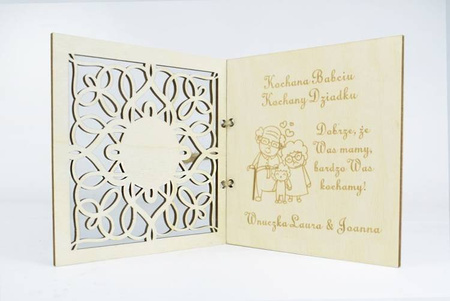 Kochana Babciu
Kochany Dziadku
Dobrze, że
Was mamy,
bardzo Was
kochamy!
Wnuczka Laura & Joanna